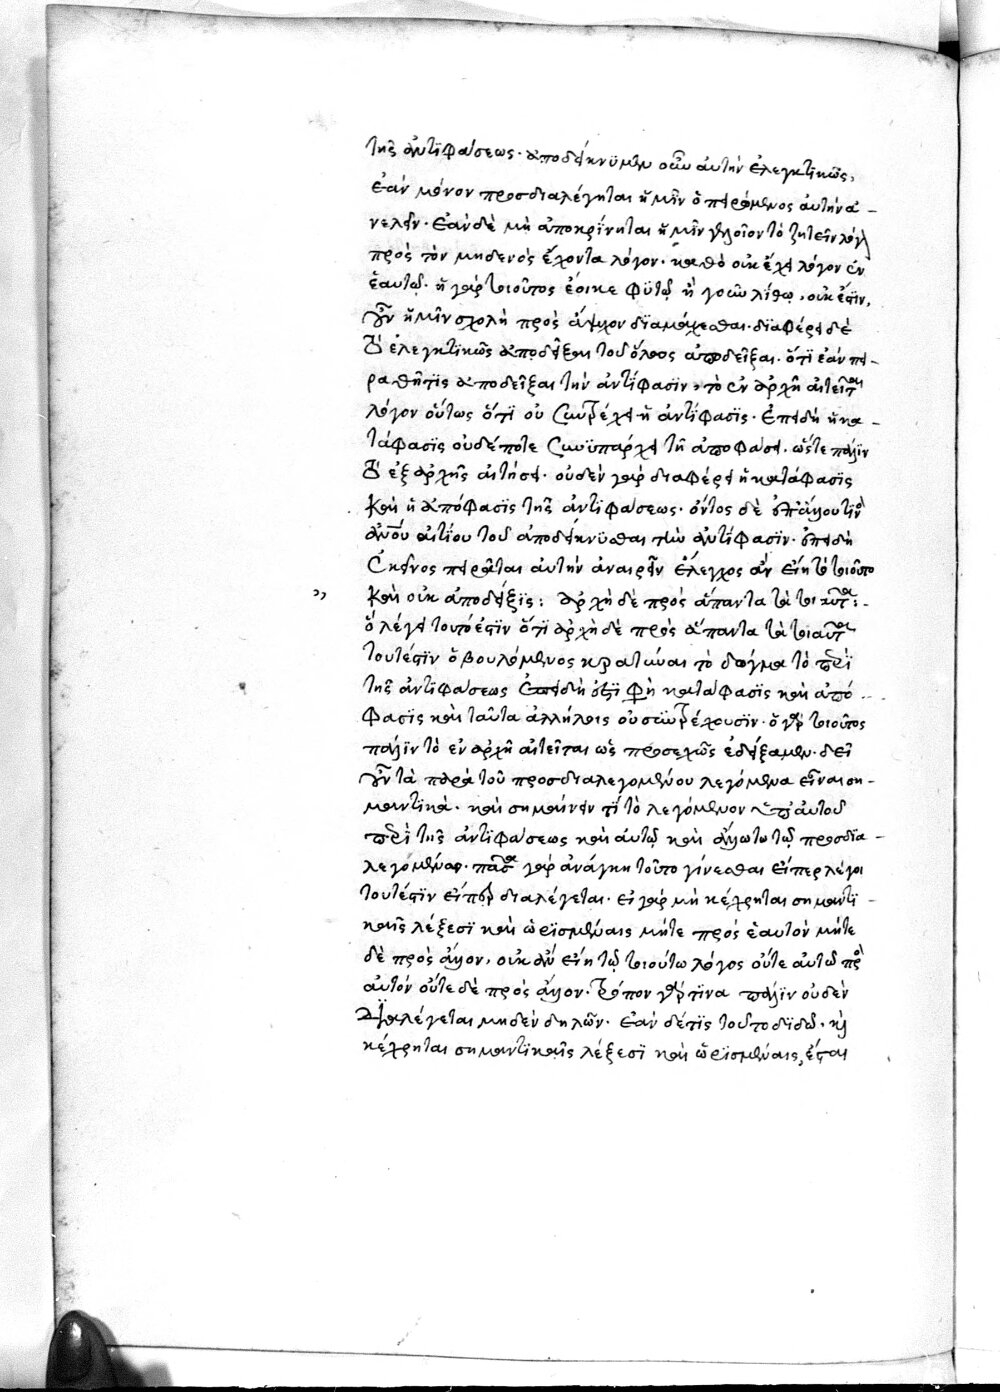 τῆς ἀντιφάσεως· ἀποδείκνυμεν οὖν αὐτὴν ἐλεγκτικῶς,
ἐὰν μόνον προσδιαλέγηται ἡμῖν ὁ πειρώμενος αὐτὴν ἀ-
νελεῖν· ἐὰν δὲ μὴ ἀποκρίνηται ἡμῖν γελοῖον τὸ ζητεῖν λόγον
πρὸς τὸν μηδενὸς ἔχοντα λόγον· καθὸ οὐκ ἔχει λόγον ἐν
ἑαυτῷ· ὁ γὰρ τοιοῦτος ἔοικε φυτῷ ἢ γοῦν λίθῳ, οὐκ ἔστιν,
οὖν ἡμῖν σχολὴ πρὸς ἄψυχον διαμάχεσθαι· διαφέρει δὲ
τὸ ἐλεγκτικῶς ἀποδεῖξαι τοῦ ὅλως ἀποδεῖξαι· ὅτι ἐὰν πει-
ραθῇ τις ἀποδεῖξαι τὴν ἀντίφασιν, τὸ ἐν ἀρχῇ αἰτεῖται
λόγον οὕτως ὅτι οὐ συντρέχει ἡ ἀντίφασις· ἐπειδὴ ἡ κα-
τάφασις οὐδέποτε συνυπάρχει τῇ ἀποφάσει· ὥστε πάλιν
τὸ ἐξ ἀρχῆς αἰτήσει· οὐδὲν γὰρ διαφέρει ἡ κατάφασις
καὶ ἡ ἀπόφασις τῆς ἀντιφάσεως· ὄντος δὲ ἐπ' ἄλλου τινὸς
ἀνθρώπου αἰτίου τοῦ ἀποδείκνυσθαι τὴν ἀντίφασιν· ἐπειδὴ
ἐκεῖνος πειρᾶται αὐτὴν ἀναιρεῖν ἔλεγχος ἂν εἴη τὸ τοιοῦτο
καὶ οὐκ ἀπόδειξις: ἀρχὴ δὲ πρὸς ἅπαντα τὰ τοιαῦτα:-
ὃ λέγει τοῦτό ἐστιν ὅτι ἀρχὴ δὲ πρὸς ἅπαντα τὰ τοιαῦτα
τουτέστιν ὁ βουλόμενος κρατῦναι τὸ δόγμα τὸ περὶ
τῆς ἀντιφάσεως ἐπειδὴ ὅτι φὴ κατάφασις καὶ ἀπό-
φασις καὶ ταῦτα ἀλλήλοις οὐ συντρέχουσιν· ὁ γὰρ τοιοῦτος
πάλιν τὸ ἐν ἀρχῇ αἰτεῖται ὡς προσεχῶς ἐδείξαμεν· δεῖ
οὖν τὰ παρὰ τοῦ προσδιαλεγομένου λεγόμενα εἶναι ση-
μαντικά· καὶ σημαίνειν τί τὸ λεγόμενον ὑπ' αὐτοῦ
περὶ τῆς ἀντιφάσεως καὶ αὐτῷ καὶ ἄλλῳ τῷ προσδια-
λεγομένῳ· πᾶσα γὰρ ἀνάγκη τοῦτο γίνεσθαι εἴπερ λέγοι
τουτέστιν εἴπερ διαλέγεται· εἰ γὰρ μὴ κέχρηται σημαντι-
καῖς λέξεσι καὶ ὡρισμέναις μήτε πρὸς ἑαυτὸν μήτε
δὲ πρὸς ἄλλον, οὐκ ἂν εἴη τῷ τοιούτῳ λόγος οὔτε αὐτῷ πρὸς
αὐτὸν οὔτε δὲ πρὸς ἄλλον· τρόπον γάρ τινα πάλιν οὐδὲν
διαλέγεται μηδὲν δηλῶν· ἐὰν δέ τις τοῦτο διδῷ· καὶ
κέχρηται σημαντικαῖς λέξεσι καὶ ὡρισμέναις, ἔσται